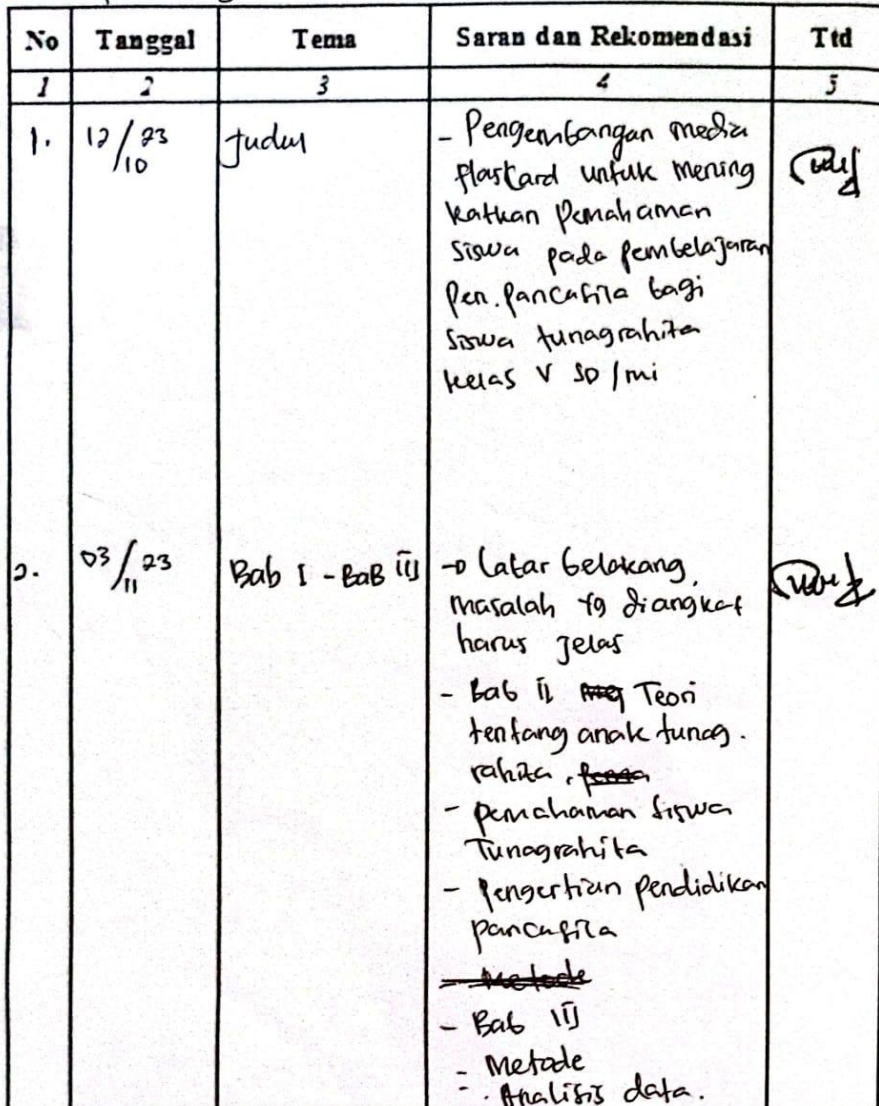 No Tanggal Tema Saran dan Rekomendasi Ttd
1 2 3 4 5
1. 12/10 23 Judul - Pengembangan media
flaskard untuk mening
katkan Pemahaman
Siswa pada pembelajaran
Pen. Pancasila bagi
siswa tunagrahita
kelas V SD/mi
2. 03/11 23 Bab I - BaB III → Latar belakang,
masalah yg diangkat
harus jelas
- Bab II Teori
tentang anak tunag.
rahita.
- pemahaman siswa
Tunagrahita
- Pengertian pendidikan
pancasila
- Metode
- Bab III
- Metode
- Analisis data.